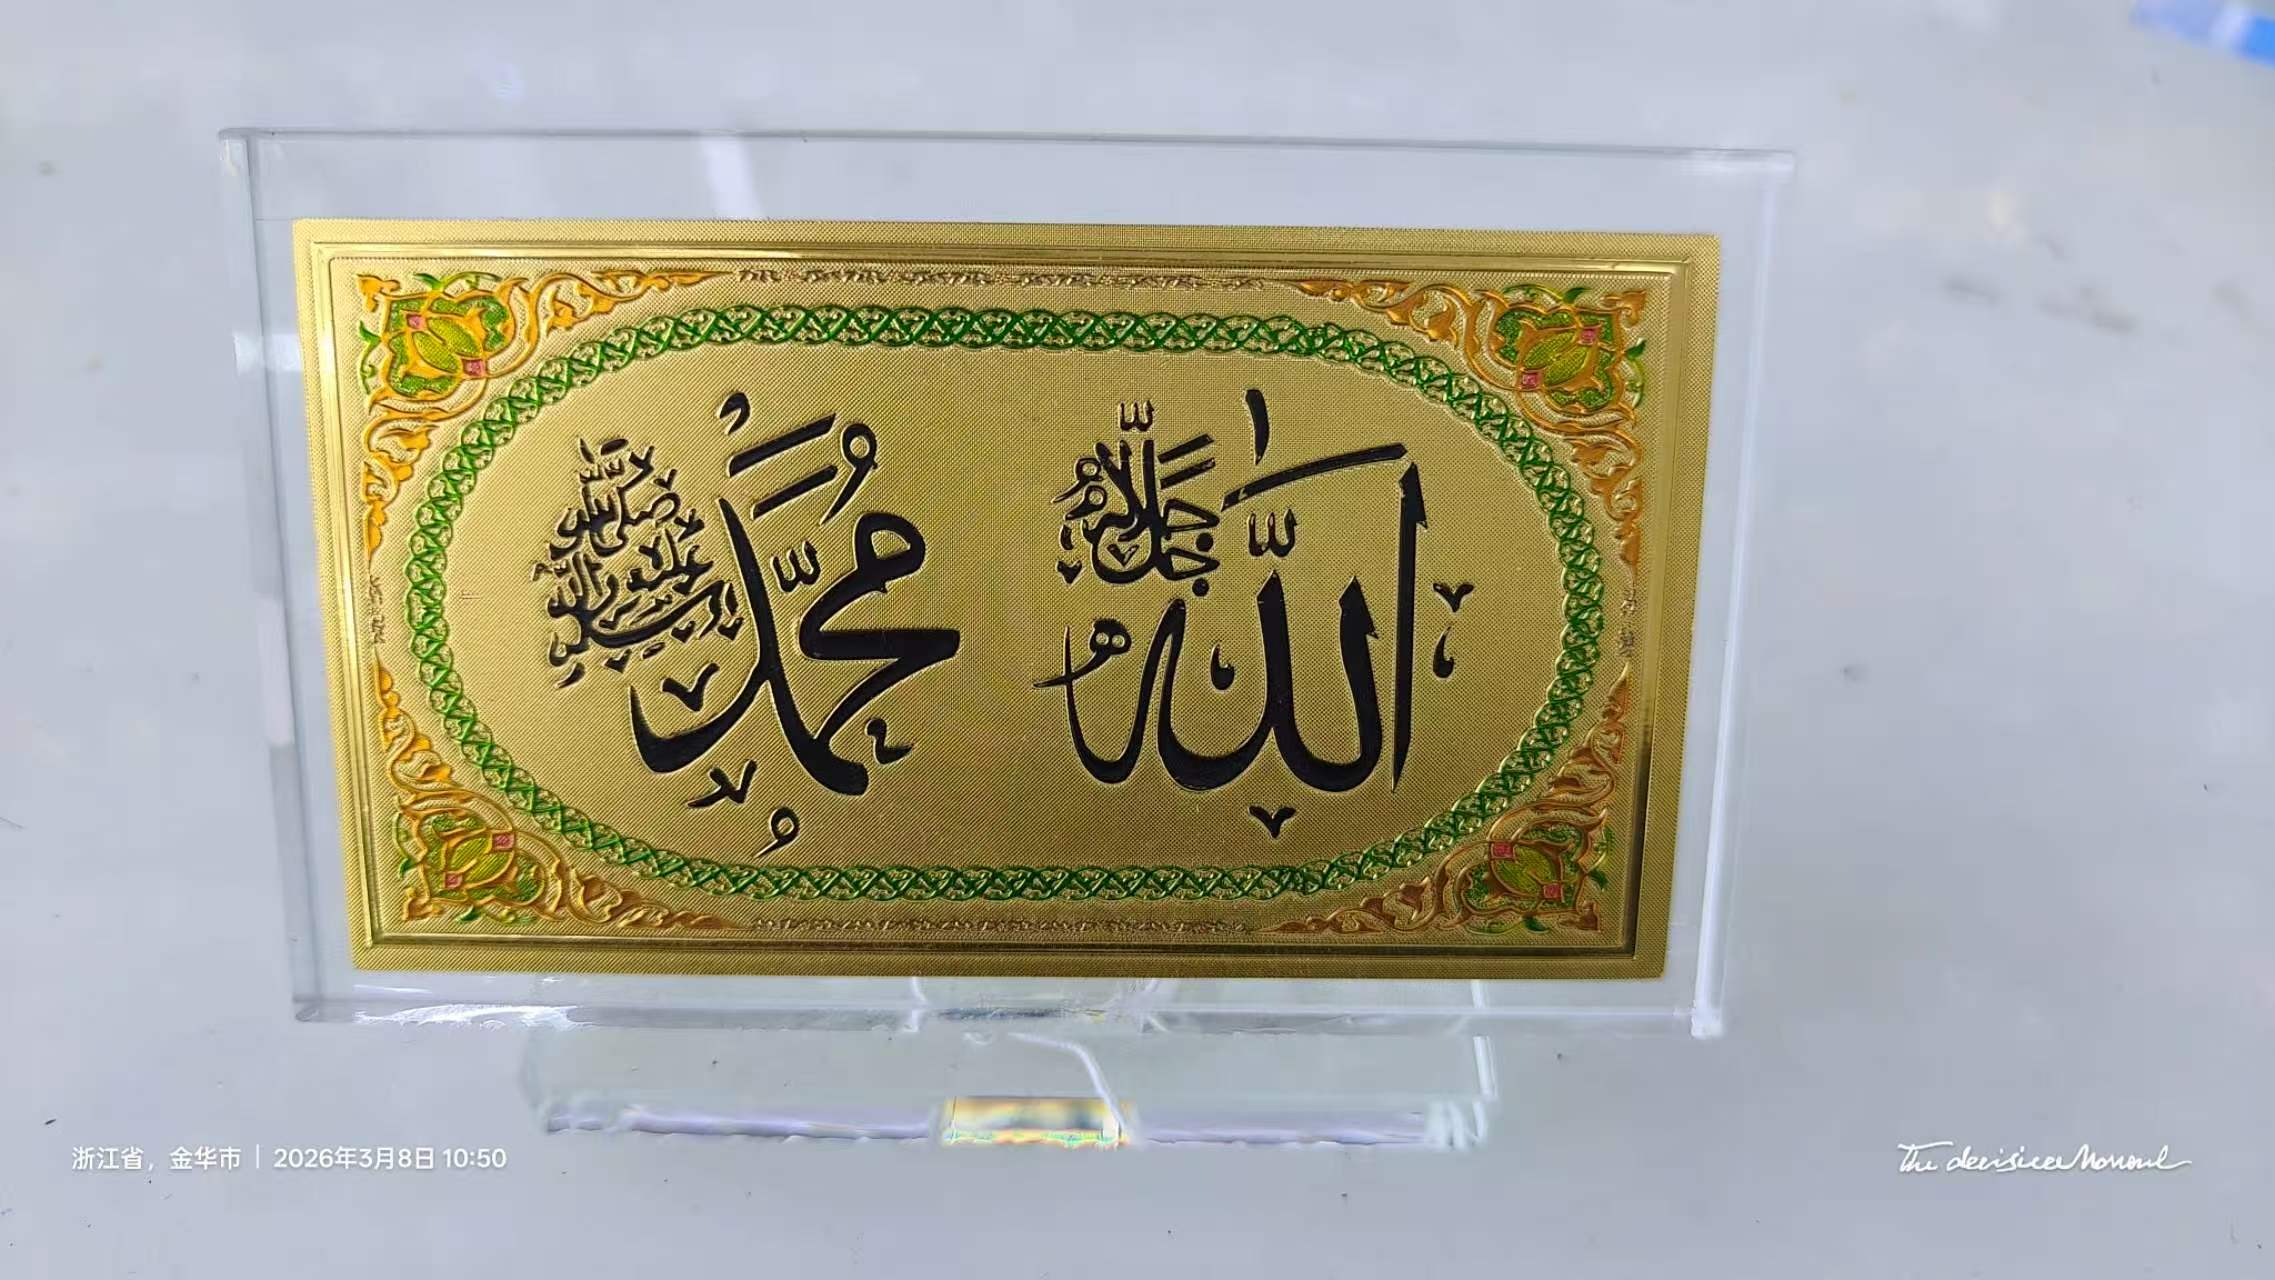 الله
جل جلاله
محمد
صلى الله
عليه وآله
وسلم
浙江省，金华市 | 2026年3月8日 10:50
The decisive Moment